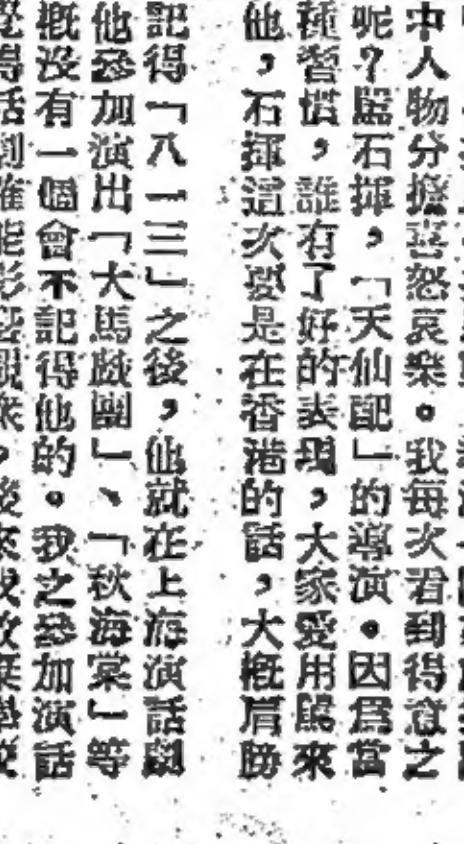 中人物分擔喜怒哀樂。我每次看到得意之
呢?罵石揮,「天仙配」的導演。因爲當
種習慣,誰有了好的表現,大家愛用罵來
他,石揮這次要是在香港的話,大概肩膀
記得「八一三」之後,他就在上海演話劇
他參加演出「大馬戲團」、「秋海棠」等
概沒有一個會不記得他的。我之參加演話